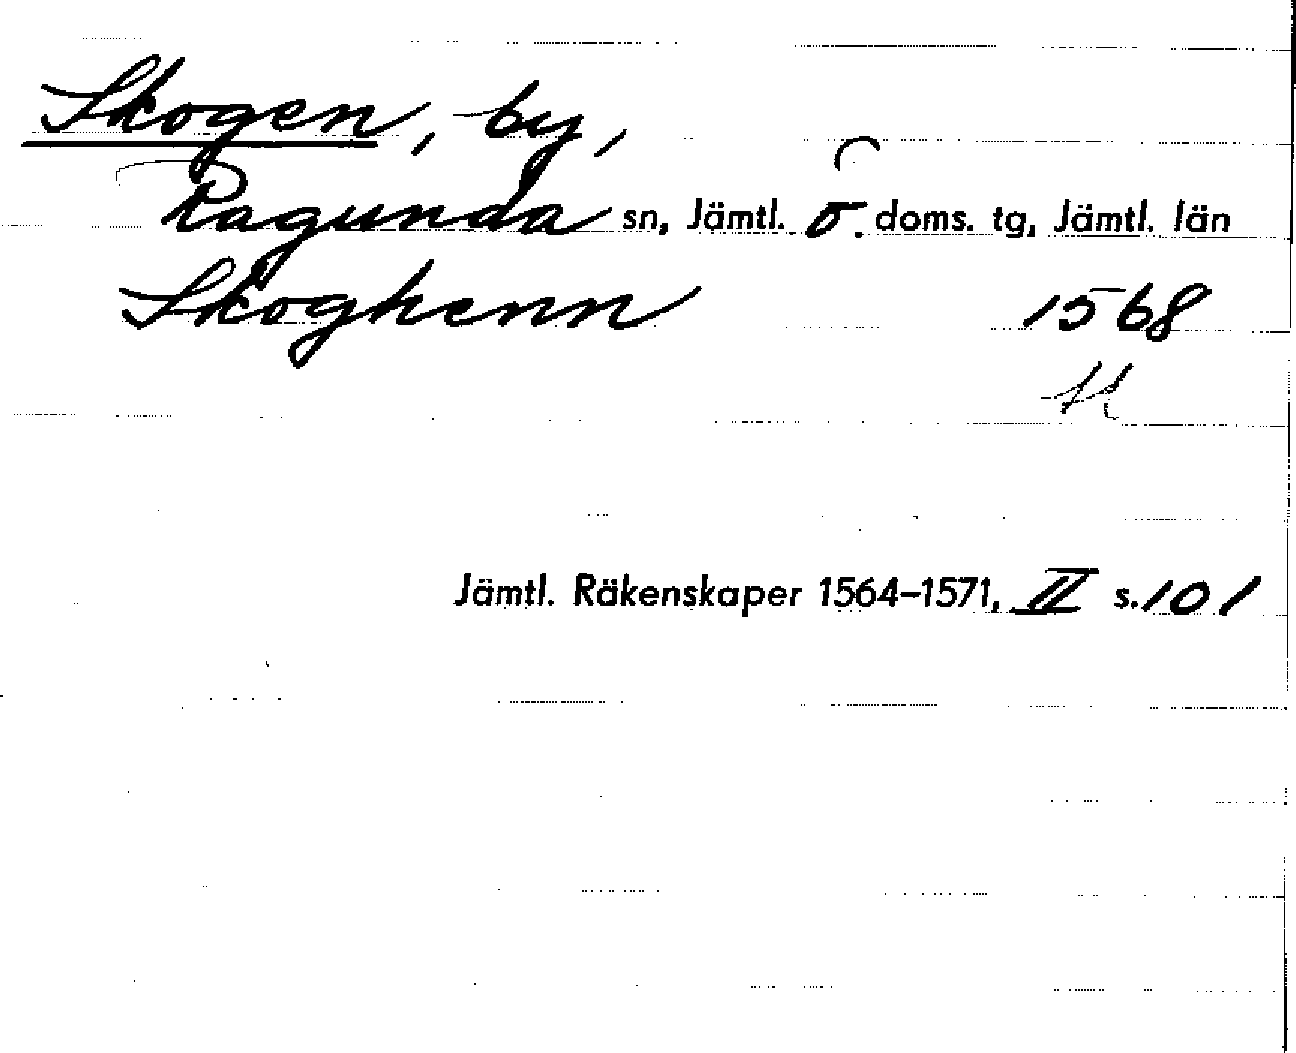 Skogen, by,
Ragunda sn, Jämtl. ö. doms. tg, Jämtl. län
Skoghenn 1568
Jämtl. Räkenskaper 1564–1571, II s. 101